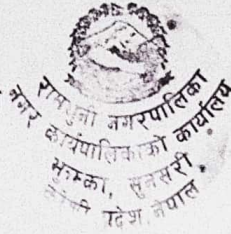 रामधुनी नगरपालिका
नगर कार्यपालिकाको कार्यालय
सुनसरी
प्रदेश, नेपाल